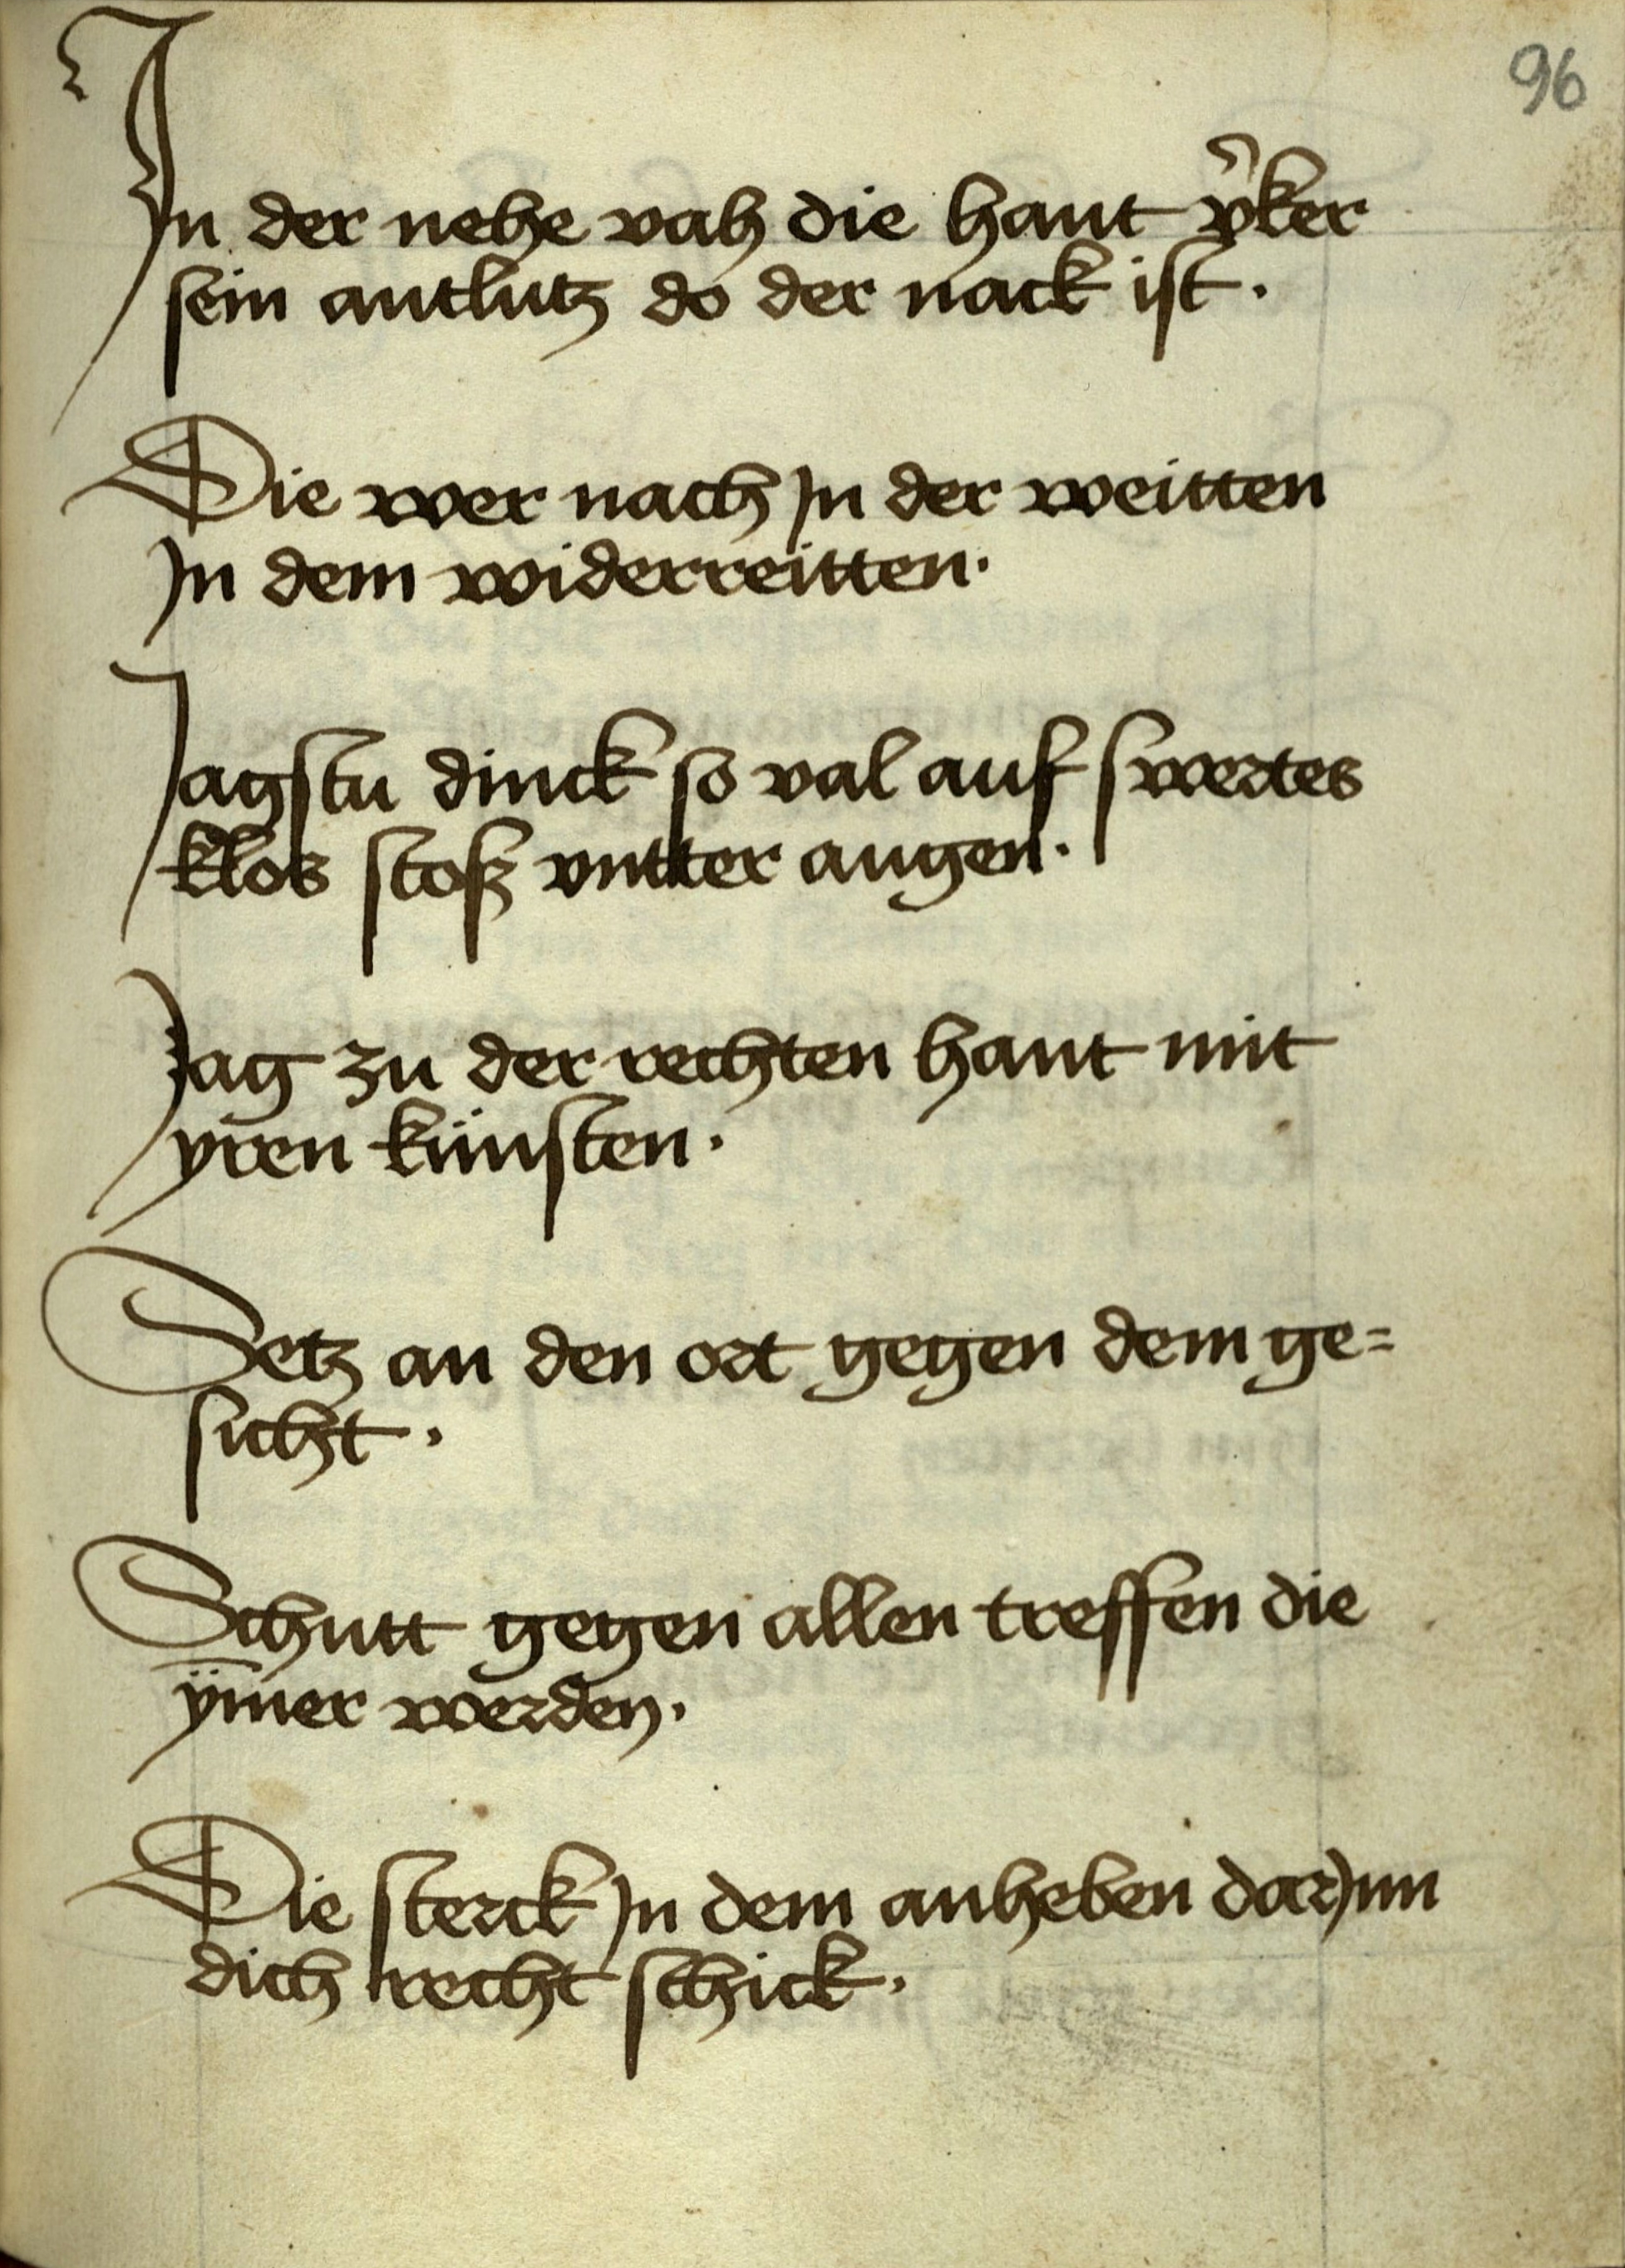 96
In der nehe vah die hant v̾ker
sein antlutz do der nack ist.
Die wer nach In der weitten
In dem widerreitten.
Jagstu dinck so val auf swertes
klos stosz vntter augen.
Jag zu der rechten hant mit
yren künsten.
Setz an den ort gegen dem ge=
sicht.
Schutt gegen allen treffen die
ÿm̄er werden.
Die sterck In dem anheben darJnn
dich recht schick.